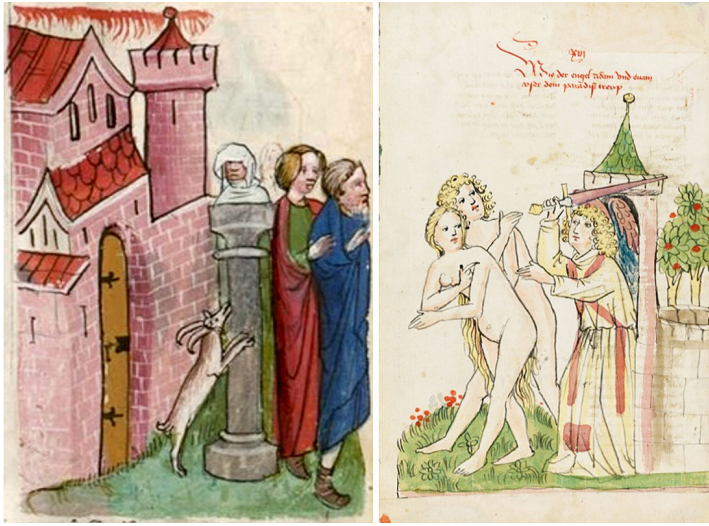 xvj
Wie der engel adam vnd euam
vsser dem paradiß treip